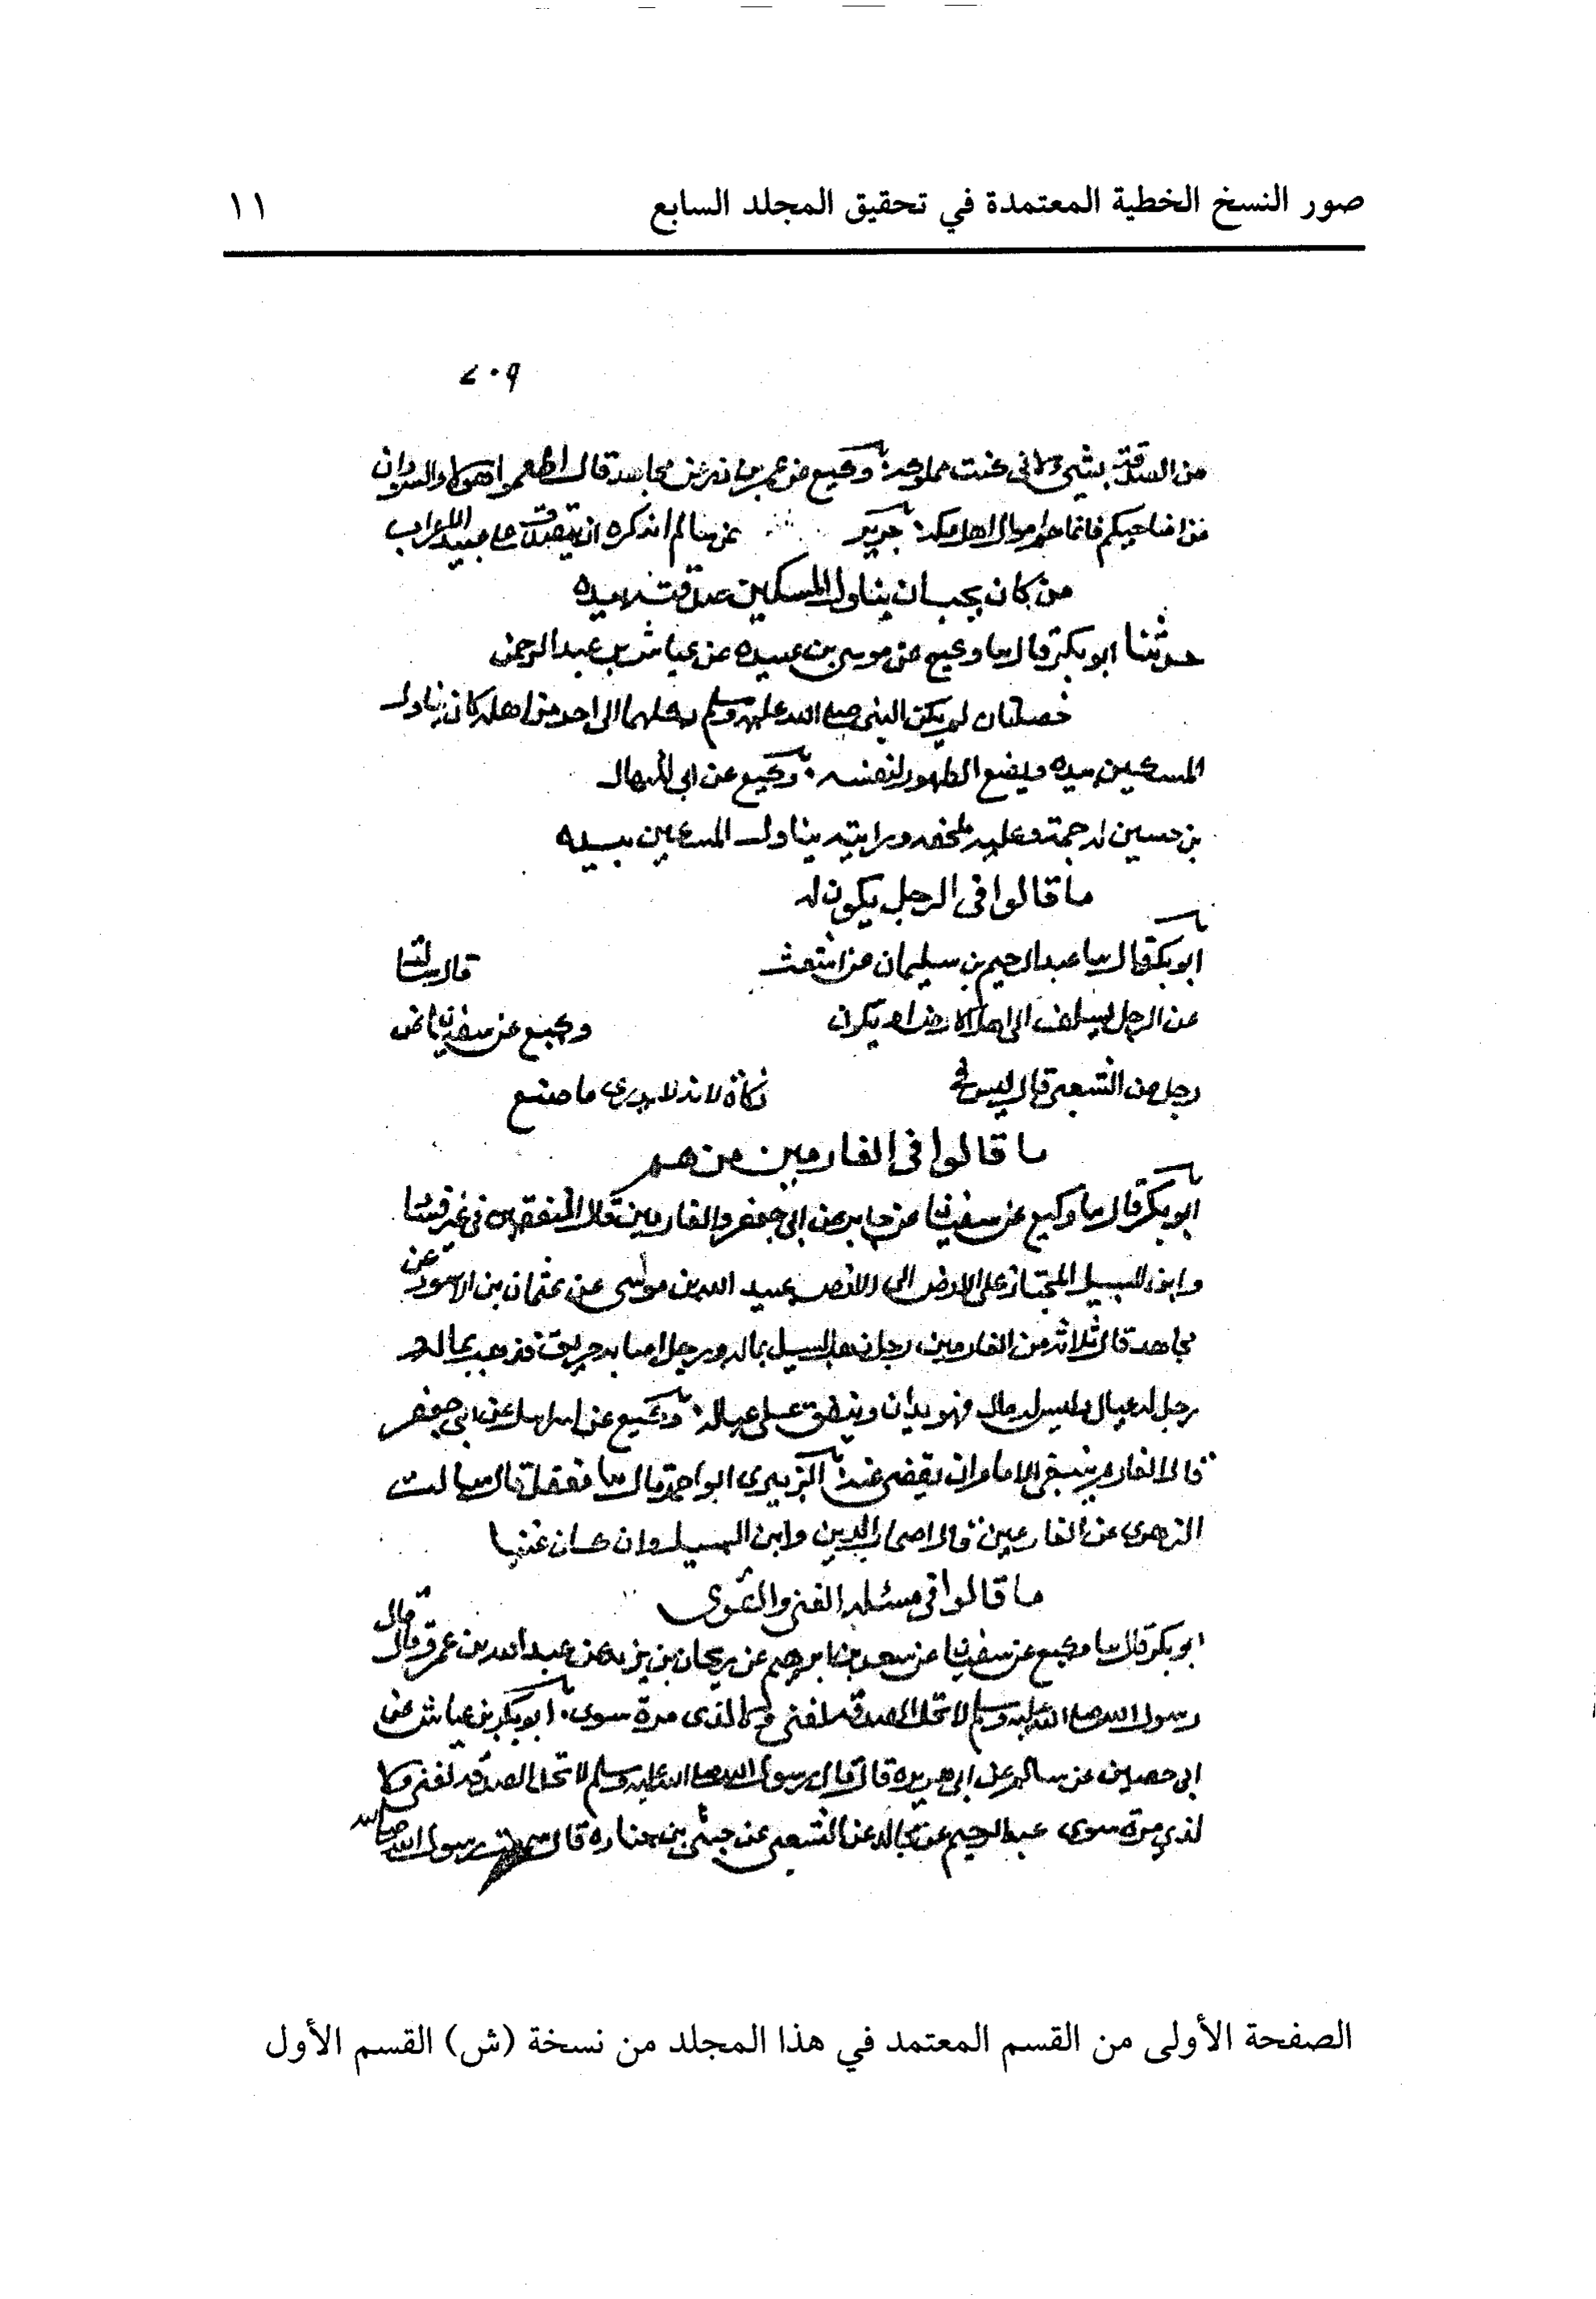 صور النسخ الخطية المعتمدة في تحقيق المجلد السابع ١١
من الصدقة بشيء وكيع عن عن مجاهد قال
من اضاحيكم فانما جرير عن سالم انه كره ان يتصدق على عبيد الاعراب
من كان يحب ان يناول المسكين صدقته بيده
حدثنا ابو بكر قال وكيع عن موسى بن عبيده عن عباس بن عبد الرحمن
خصلتان لم يكن النبى صلى الله عليه وسلم الى احد من اهله كان يناول
المسكين بيده ويضع الطهور لنفسه وكيع عن ابى المنهال
بن حسين له جمة وعليه ملحفه ورايته يناول المسكين بيده
ما قالوا فى الرجل يكون له
ابو بكر قال عبد الرحيم بن سليمان عن اشعث قال سالنا
عن الرجل يسلف الى اهل الارض يكون وكيع عن سفين عن
رجل عن الشعبى قال ليس فى زكاة لانه لا يدرى ما صنع
ما قالوا فى الغارمين من هم
ابو بكر قال وكيع عن سفين عن جابر عن ابى جعفر والغارمين قال المنفقين فى غير فساد
وابن السبيل المجتاز على الارض الى الارض عبيد الله بن موسى عن عثمان بن الاسود عن
مجاهد قال ثلاثة من الغارمين رجل ذهب السيل بماله ورجل اصابه حريق فذهب بماله
رجل له عيال وليس له مال فهو يدان وينفق على عياله وكيع عن عن ابى جعفر
قال الغارم ينبغى للامام ان يقضى عنه الزبيرى ابو احمد قال معقل قال سالت
الزهرى عن الغارمين قال اصحاب الدين وابن السبيل وان كان غنيا
ما قالوا فى مسئلة الغنى والقوى
ابو بكر قال وكيع عن سفين عن سعد بن ابرهيم عن ريحان بن يزيد عن عبد الله بن عمرو قال قال
رسول الله صلى الله عليه وسلم لا تحل الصدقه لغنى ولا لذى مرة سوى ابو بكر بن عياش عن
ابى حصين عن سالم عن ابى هريره قال قال رسول الله صلى الله عليه وسلم لا تحل الصدقه لغنى ولا
لذى مرة سوى عبد الرحيم عن مجالد عن الشعبى عن حبشى بن جناده قال سمعت رسول الله صلى الله
الصفحة الأولى من القسم المعتمد في هذا المجلد من نسخة (ش) القسم الأول